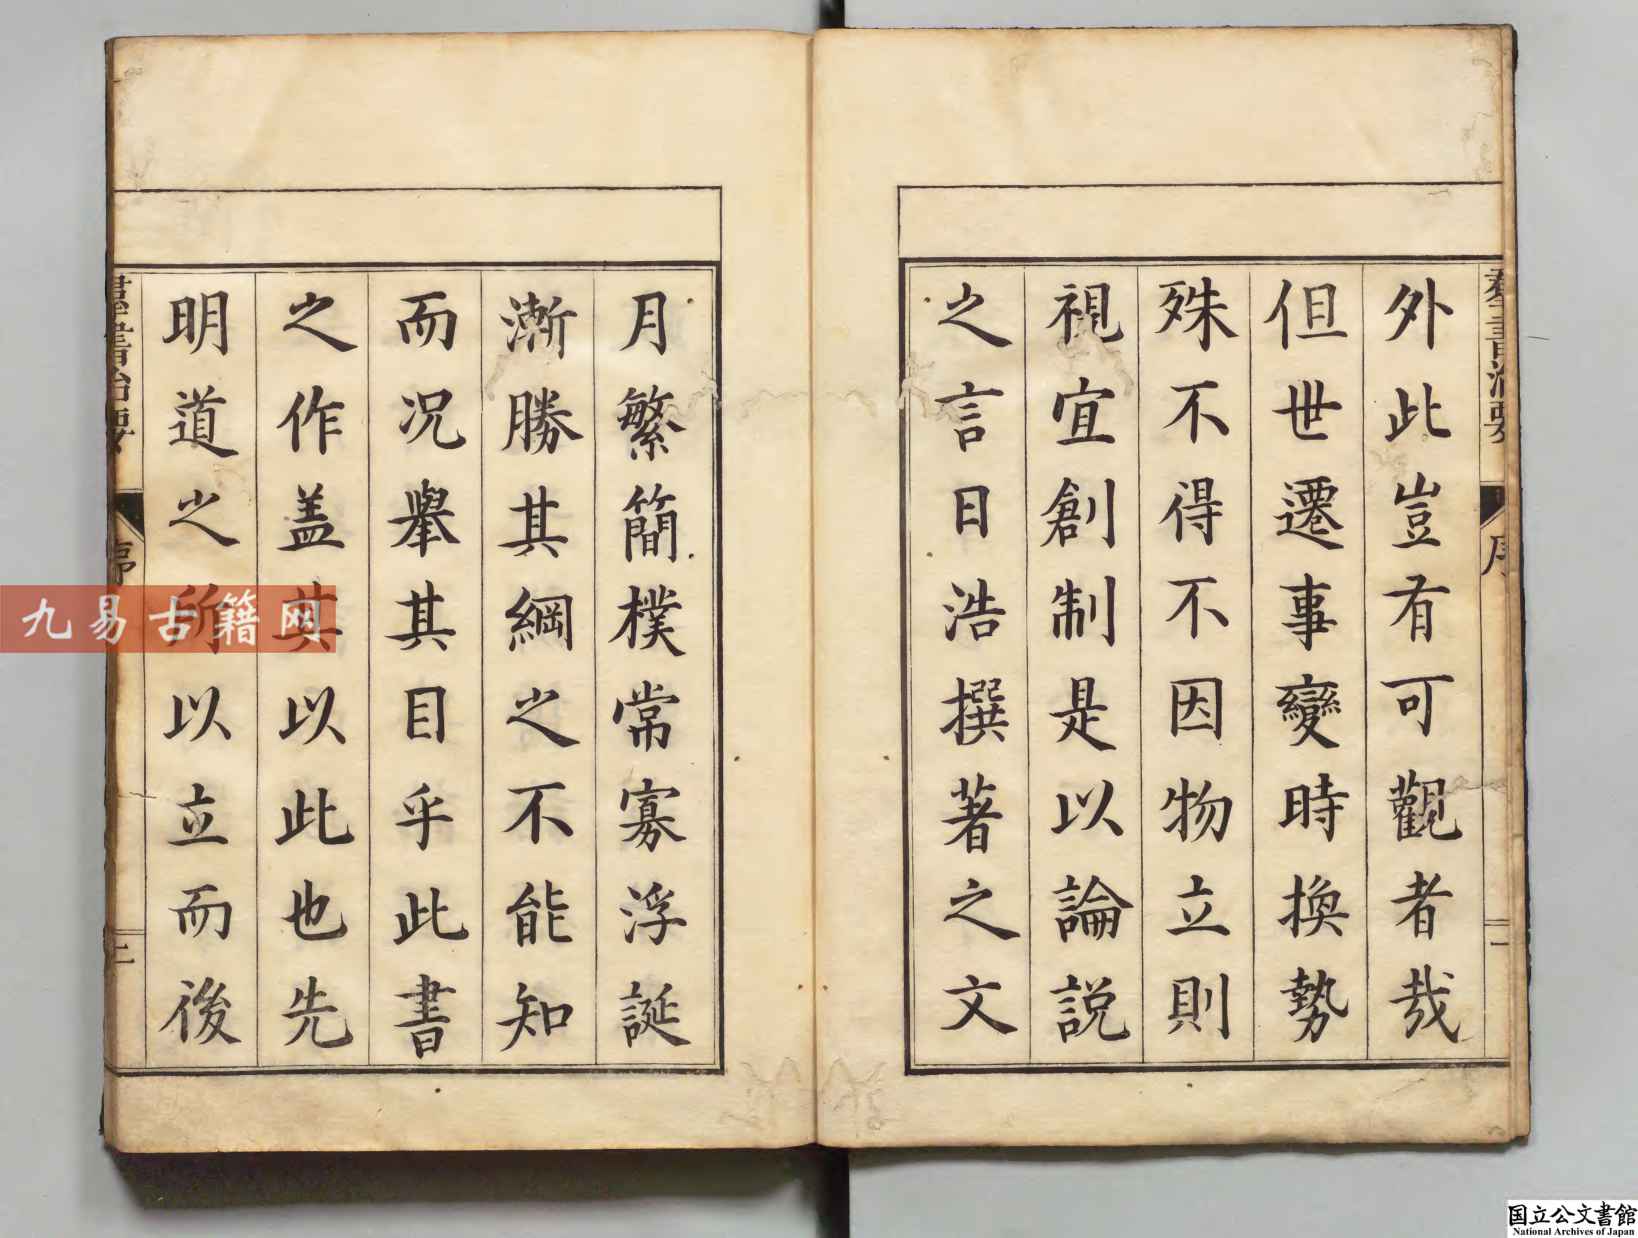 羣書治要
序
一
外此豈有可觀者哉
但世遷事變時換勢
殊不得不因物立則
視宜創制是以論説
之言日浩撰著之文
月繁簡樸常寡浮誕
漸勝其綱之不能知
而況舉其目乎此書
之作盖其以此也先
明道之所以立而後
羣書治要
序
九易古籍网
国立公文書館
National Archives of Japan